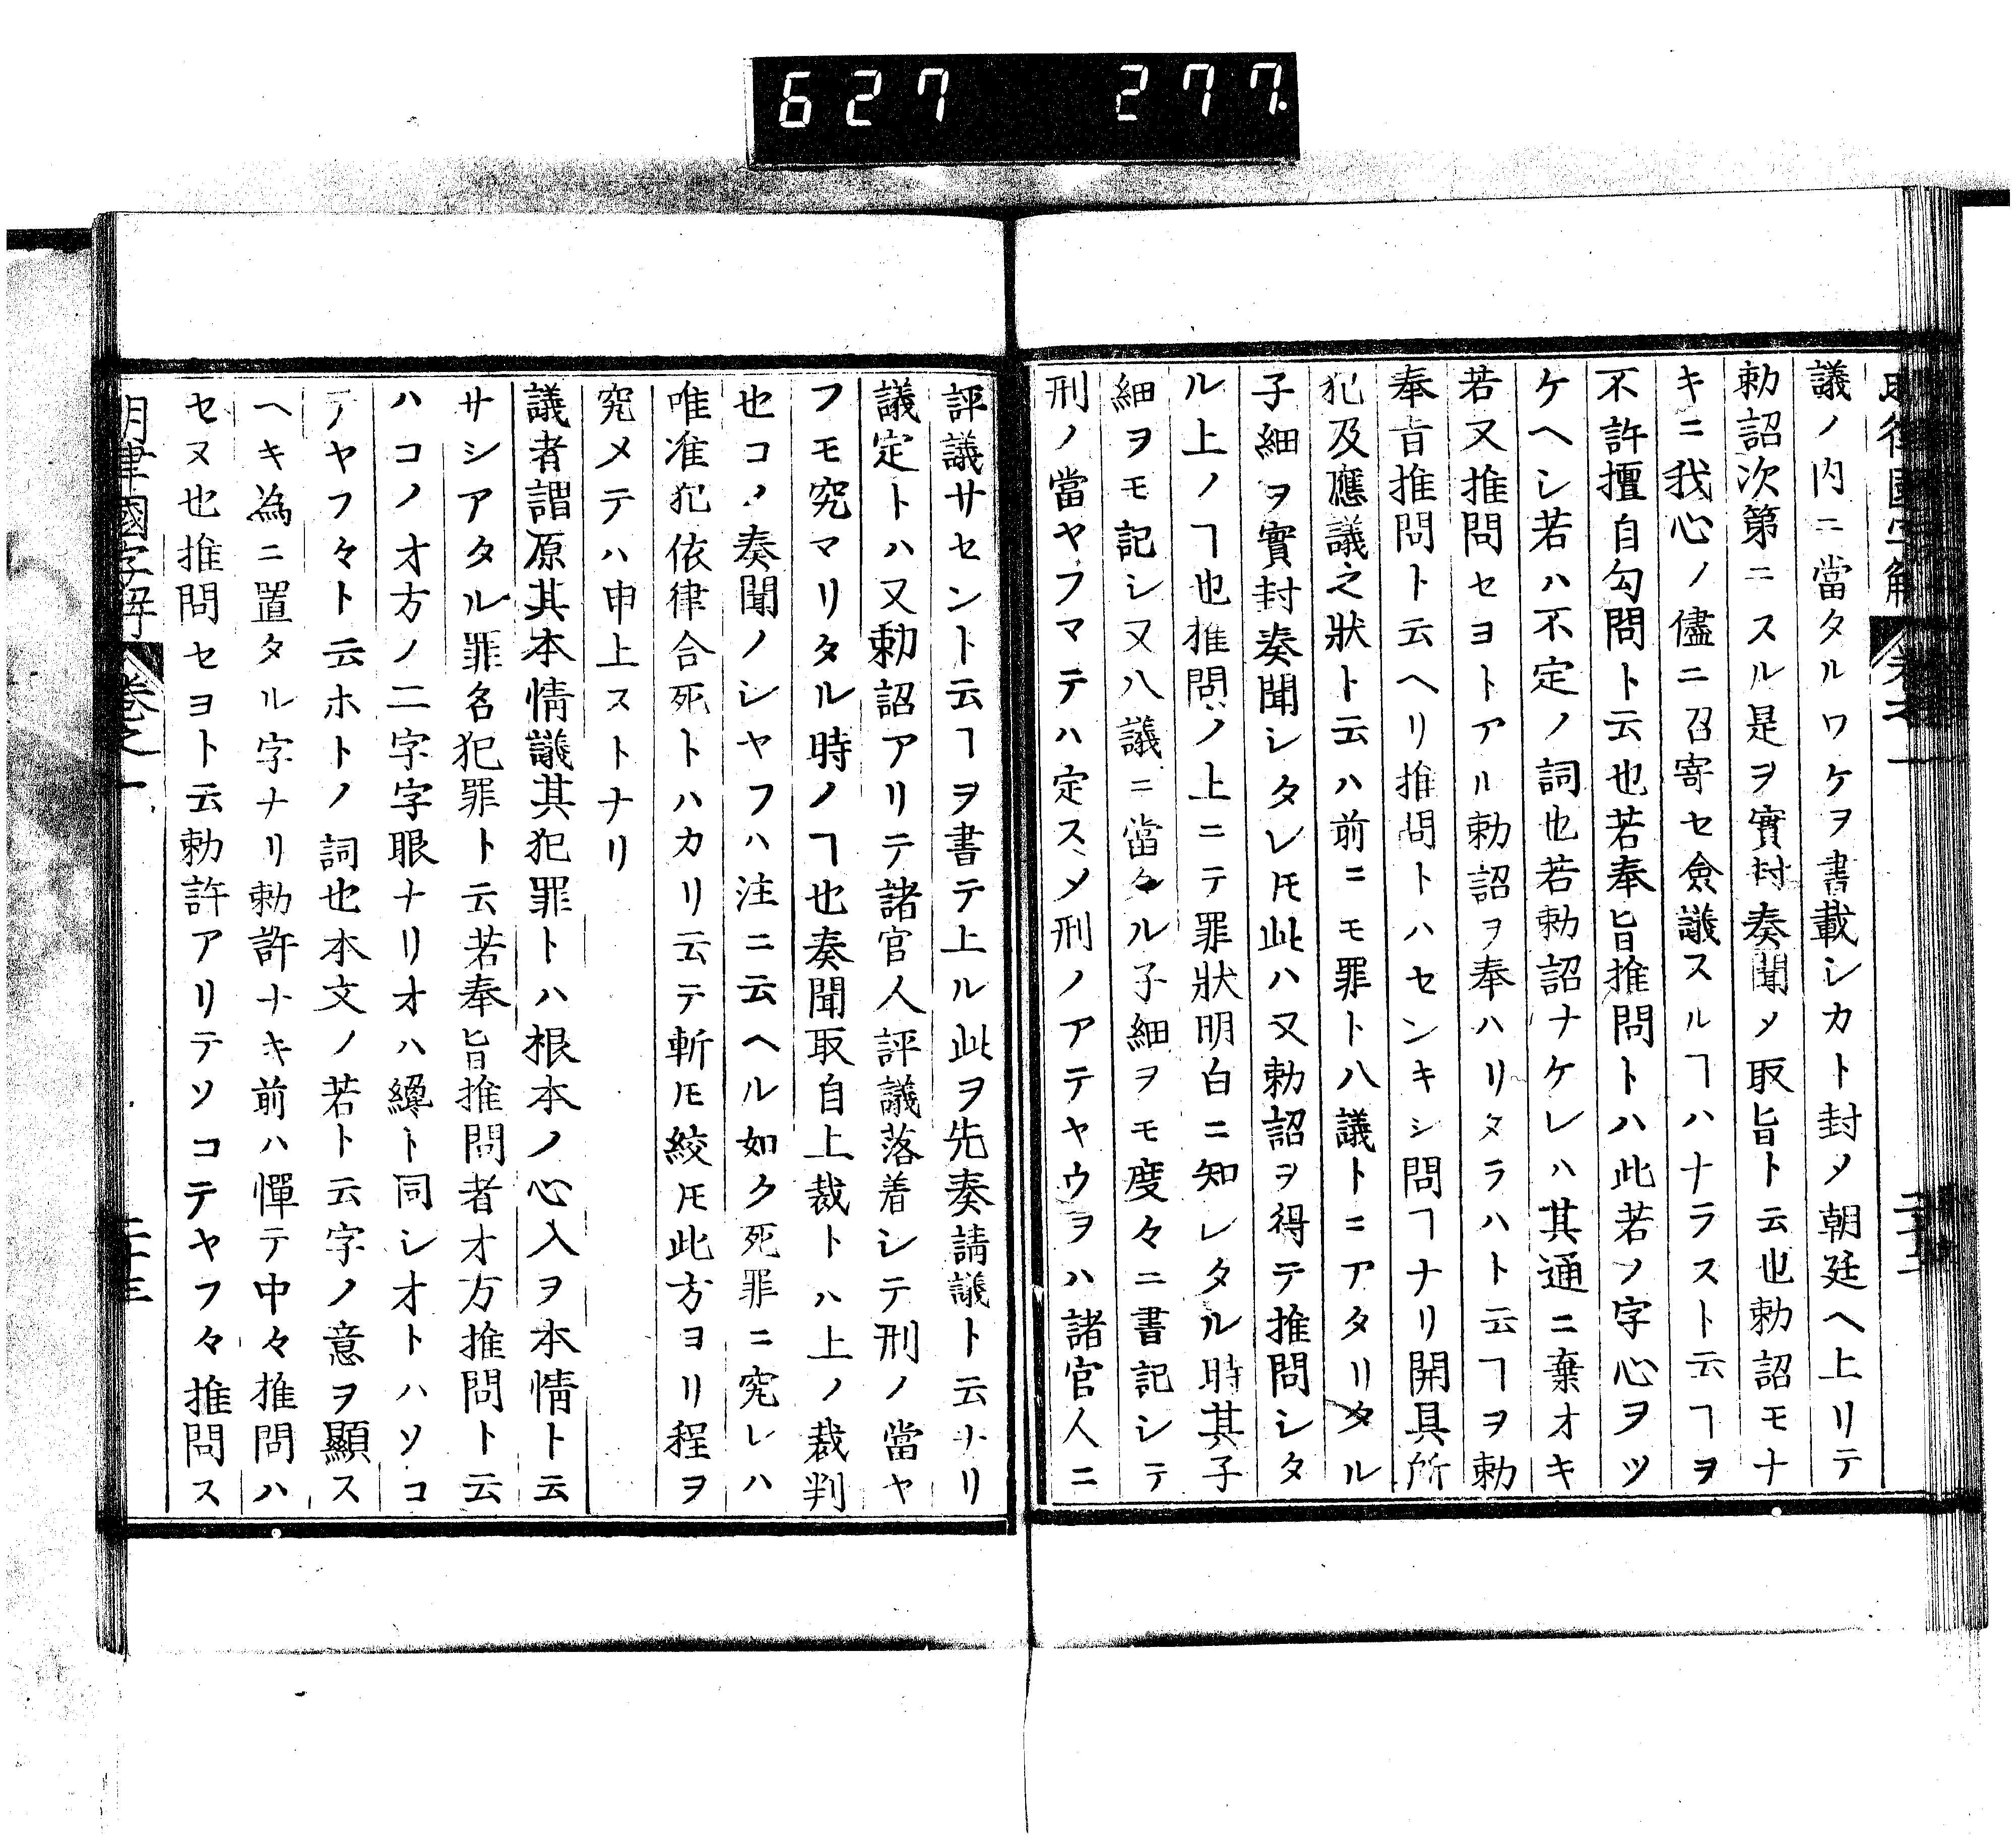 627 277.
議ノ内ニ當タルワケヲ書載シカト封メ朝廷ヘ上リテ
勅詔次第ニスル是ヲ實封奏聞メ取旨ト云也勅詔モナ
キニ我心ノ儘ニ召寄セ僉議スルヿハナラスト云ヿヲ
不許擅自勾問ト云也若奉旨推問トハ此若ノ字心ヲツ
ケヘシ若ハ不定ノ詞也若勅詔ナケレハ其通ニ棄オキ
若又推問セヨトアル勅詔ヲ奉ハリタラハト云ヿヲ勅
奉旨推問ト云ヘリ推問トハセンキシ問ヿナリ開具所
犯及應議之狀ト云ハ前ニモ罪ト八議トニアタリタル
子細ヲ實封奏聞シタレ𪜈此ハ又勅詔ヲ得テ推問シタ
ル上ノヿ也推問ノ上ニテ罪狀明白ニ知レタル時其子
細ヲモ記シ又八議ニ當タル子細ヲモ度々ニ書記シテ
刑ノ當ヤフマテハ定スメ刑ノアテヤウヲハ諸官人ニ
評議サセント云ヿヲ書テ上ル此ヲ先奏請議ト云ナリ
議定トハ又勅詔アリテ諸官人評議落着シテ刑ノ當ヤ
フモ究マリタル時ノヿ也奏聞取自上裁トハ上ノ裁判
也コノ奏聞ノシヤフハ注ニ云ヘル如ク死罪ニ究レハ
唯准犯依律合死トハカリ云テ斬𪜈絞𪜈此方ヨリ程ヲ
究メテハ申上ストナリ
議者謂原其本情議其犯罪トハ根本ノ心入ヲ本情ト云
サシアタル罪名犯罪ト云若奉旨推問者才方推問ト云
ハコノオ方ノ二字字眼ナリオハ纔ト同シオトハソコ
テヤフ々ト云ホトノ詞也本文ノ若ト云字ノ意ヲ顯ス
ヘキ為ニ置タル字ナリ勅許ナキ前ハ憚テ中々推問ハ
セヌ也推問セヨト云勅許アリテソコテヤフ々推問ス
明律國字解 卷之一 二十三